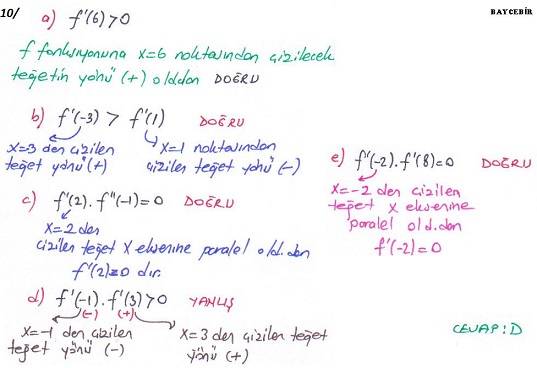 10/
BAYCEBİR
a) f'(6)>0
f fonksiyonuna x=6 noktasından çizilecek
teğetin yönü (+) olddan DOĞRU
b) f'(-3) > f'(1) DOĞRU
x=3 den çizilen
teğet yönü (+)
x=1 noktasından
çizilen teğet yönü (-)
c) f'(2). f''(-1)=0 DOĞRU
x=2 den
çizilen teğet x eksenine paralel old.dan
f'(2)=0 dır.
d) f'(-1). f'(3)>0 YANLIŞ
(-) (+)
x=-1 den çizilen
teğet yönü (-)
x=3 den çizilen teğet
yönü (+)
e) f'(-2). f'(8)=0 DOĞRU
x=-2 den çizilen
teğet x eksenine
paralel old.dan
f'(-2)=0
CEVAP: D